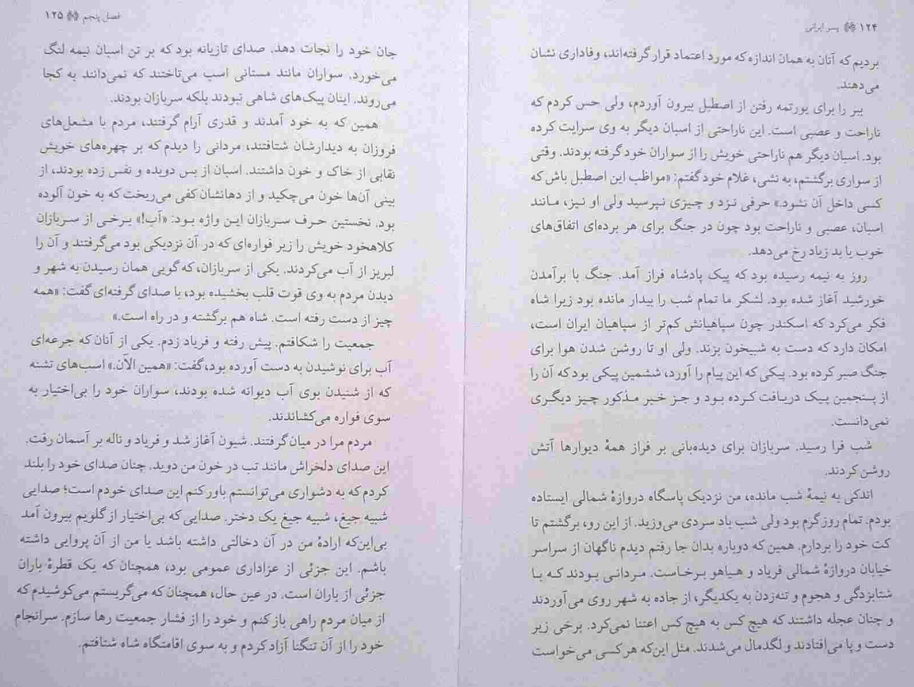 ۱۲۴ پسر ایرانی
بردیم که آنان به همان اندازه که مورد اعتماد قرار گرفته‌اند، وفاداری نشان
می‌دهند.
ببر را برای یورتمه رفتن از اصطبل بیرون آوردم، ولی حس کردم که
ناراحت و عصبی است. این ناراحتی از اسبان دیگر به وی سرایت کرده
بود. اسبان دیگر هم ناراحتی خویش را از سواران خود گرفته بودند. وقتی
از سواری برگشتم، به نشی، غلام خود گفتم: «مواظب این اصطبل باش که
کسی داخل آن نشود.» حرفی نزد و چیزی نپرسید ولی او نیز، مانند
اسبان، عصبی و ناراحت بود چون در جنگ برای هر برده‌ای اتفاق‌های
خوب یا بد زیاد رخ می‌دهد.
روز به نیمه رسیده بود که پیک پادشاه فراز آمد. جنگ با برآمدن
خورشید آغاز شده بود. لشکر ما تمام شب را بیدار مانده بود زیرا شاه
فکر می‌کرد که اسکندر چون سپاهیانش کم‌تر از سپاهیان ایران است،
امکان دارد که دست به شبیخون بزند. ولی او تا روشن شدن هوا برای
جنگ صبر کرده بود. پیکی که این پیام را آورد، ششمین پیکی بود که آن را
از پنجمین پیک دریافت کرده بود و جز خبر مذکور چیز دیگری
نمی‌دانست.
شب فرا رسید. سربازان برای دیده‌بانی بر فراز همهٔ دیوارها آتش
روشن کردند.
اندکی به نیمهٔ شب مانده، من نزدیک پاسگاه دروازهٔ شمالی ایستاده
بودم. تمام روز گرم بود ولی شب باد سردی می‌وزید. از این رو، برگشتم تا
کت خود را بردارم. همین که دوباره بدان جا رفتم دیدم ناگهان از سراسر
خیابان دروازهٔ شمالی فریاد و هیاهو برخاست. مردانی بودند که با
شتابزدگی و هجوم و تنه‌زدن به یکدیگر، از جاده به شهر روی می‌آوردند
و چنان عجله داشتند که هیچ کس به هیچ کس اعتنا نمی‌کرد. برخی زیر
دست و پا می‌افتادند و لگدمال می‌شدند. مثل این‌که هر کسی می‌خواست
فصل پنجم ۱۲۵
جان خود را نجات دهد. صدای تازیانه بود که بر تن اسبان نیمه لنگ
می‌خورد. سواران مانند مستانی اسب می‌تاختند که نمی‌دانند به کجا
می‌روند. اینان پیک‌های شاهی نبودند بلکه سربازان بودند.
همین که به خود آمدند و قدری آرام گرفتند، مردم با مشعل‌های
فروزان به دیدارشان شتافتند، مردانی را دیدم که بر چهره‌های خویش
نقابی از خاک و خون داشتند. اسبان از بس دویده و نفس زده بودند، از
بینی آن‌ها خون می‌چکید و از دهانشان کفی می‌ریخت که به خون آلوده
بود. نخستین حرف سربازان این واژه بود: «آب!» برخی از سربازان
کلاهخود خویش را زیر فواره‌ای که در آن نزدیکی بود می‌گرفتند و آن را
لبریز از آب می‌کردند. یکی از سربازان، که گویی همان رسیدن به شهر و
دیدن مردم به وی قوت قلب بخشیده بود، با صدای گرفته‌ای گفت: «همه
چیز از دست رفته است. شاه هم برگشته و در راه است.»
جمعیت را شکافتم. پیش رفته و فریاد زدم. یکی از آنان که جرعه‌ای
آب برای نوشیدن به دست آورده بود، گفت: «همین الآن.» اسب‌های تشنه
که از شنیدن بوی آب دیوانه شده بودند، سواران خود را بی‌اختیار به
سوی فواره می‌کشاندند.
مردم مرا در میان گرفتند. شیون آغاز شد و فریاد و ناله بر آسمان رفت.
این صدای دلخراش مانند تب در خون من دوید. چنان صدای خود را بلند
کردم که به دشواری می‌توانستم باور کنم این صدای خودم است؛ صدایی
شبیه جیغ، شبیه جیغ یک دختر. صدایی که بی‌اختیار از گلویم بیرون آمد
بی‌این‌که ارادهٔ من در آن دخالتی داشته باشد یا من از آن پروایی داشته
باشم. این جزئی از عزاداری عمومی بود، همچنان که یک قطرهٔ باران
جزئی از باران است. در عین حال، همچنان که می‌گریستم می‌کوشیدم که
از میان مردم راهی باز کنم و خود را از فشار جمعیت رها سازم. سرانجام
خود را از آن تنگنا آزاد کردم و به سوی اقامتگاه شاه شتافتم.